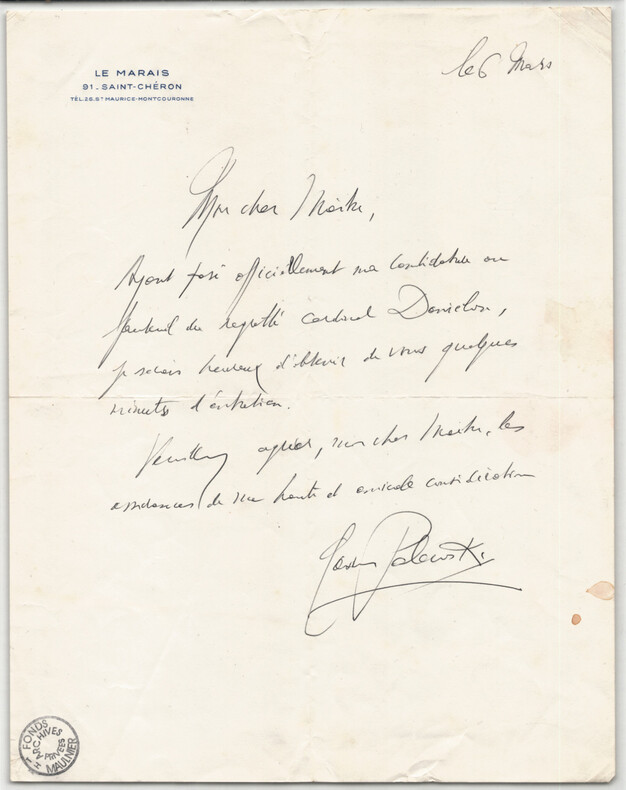 LE MARAIS
91_SAINT-CHÉRON
TÉL.26.ST MAURICE-MONTCOURONNE
le 6 Mars
Mon cher Maître,
Ayant posé officiellement ma candidature au
fauteuil du regretté cardinal Danielou,
je serais heureux d'obtenir de vous quelques
minutes d'entretien.
Veuillez agréer, mon cher Maître, les
assurances de ma haute et amicale considération
Gaston Palewski
FONDS MAULNIER
ARCHIVES PRIVÉES